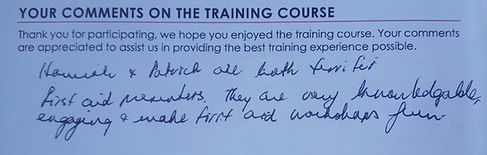 YOUR COMMENTS ON THE TRAINING COURSE
Thank you for participating, we hope you enjoyed the training course. Your comments
are appreciated to assist us in providing the best training experience possible.
Hannah & Patrick are both
First aid presenters. They are very knowledgable,
engaging & make first aid workshops fun.